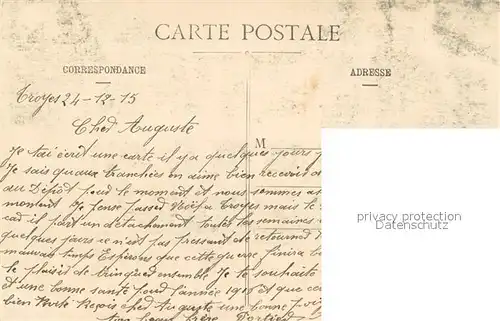 CARTE POSTALE
CORRESPONDANCE
ADRESSE
Troyes 24-12-15
Cher Auguste
M
Je t'ai écrit une carte il y a quelques jours
Je sais qu'aux tranchées on aime bien recevoir
au Dépôt pour le moment et nous sommes
moment Je pense passer Noël a Troyes mais le
car il part un détachement toutes les semaines
quelques jours ce n'est pas pressant de retourner
mauvais temps Espérons que cette guerre finira
le plaisir de trinquer ensemble Je te souhaite
et une bonne santé pour l'année 1916 et que
bien Reçois cher Auguste une bonne
Ton frère
privacy protection
Datenschutz